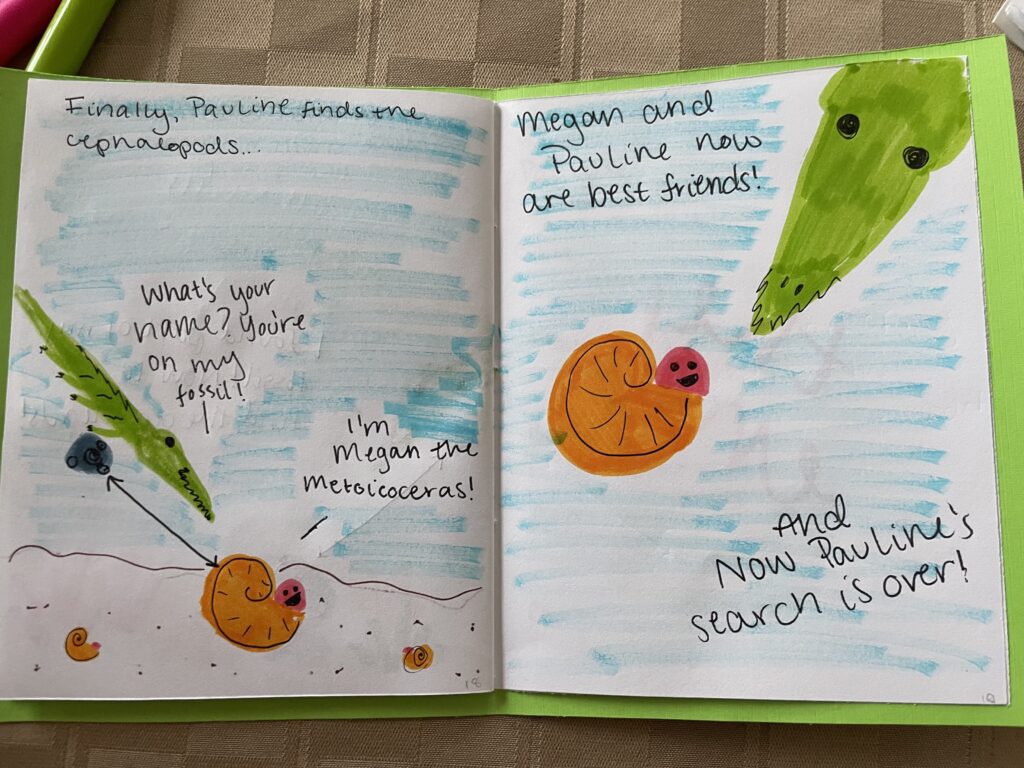 Finally, Pauline finds the
cephalopods...
What's your
name? You're
on my
fossil!
I'm
Megan the
Metoicoceras!
18
Megan and
Pauline now
are best friends!
And
Now Pauline's
search is over!
19